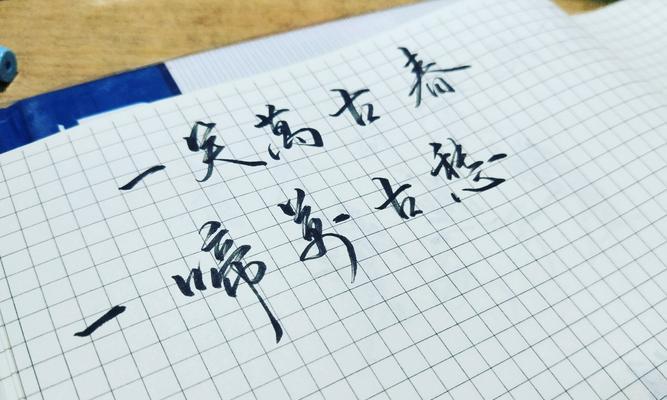 一笑萬古春
一啼萬古愁